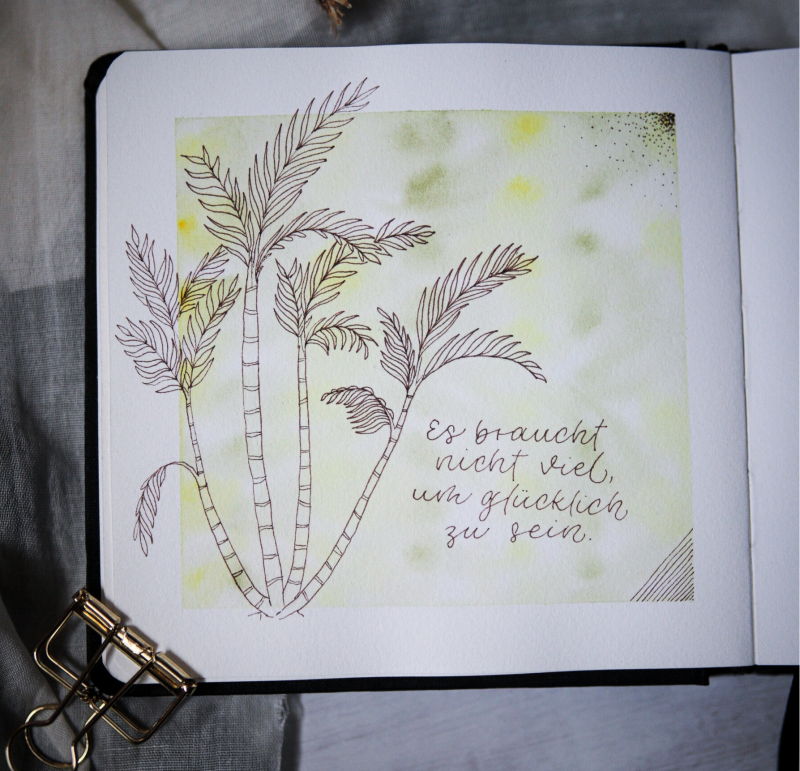 Es braucht
nicht viel,
um glücklich
zu sein.